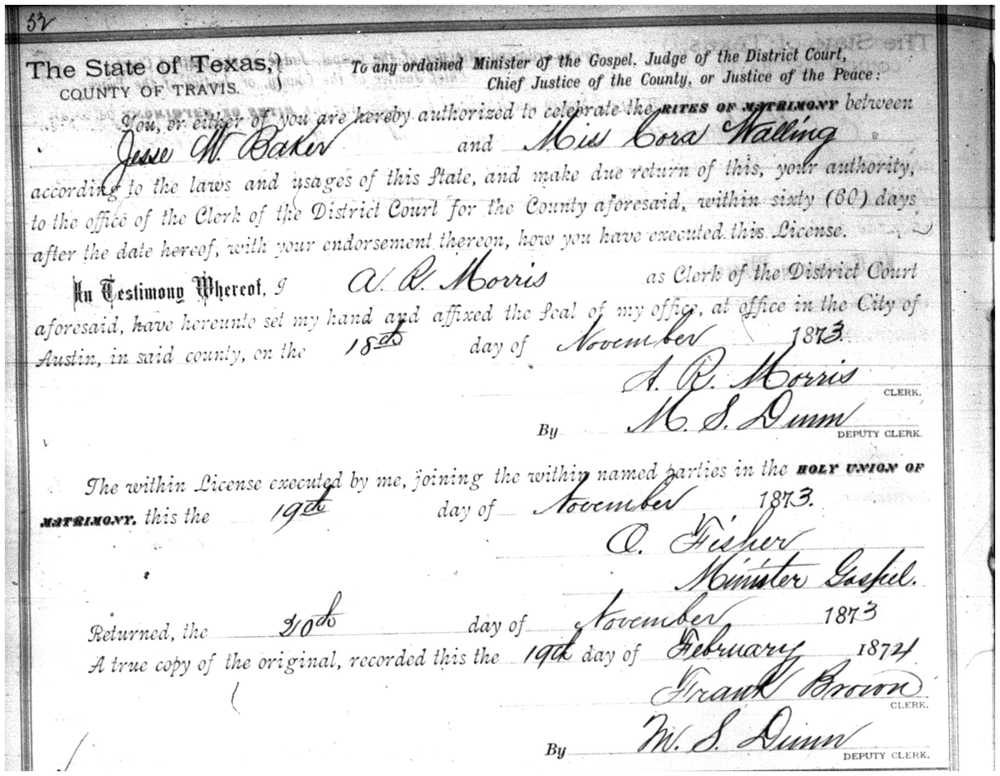 52
The State of Texas,}
COUNTY OF TRAVIS.
To any ordained Minister of the Gospel, Judge of the District Court,
Chief Justice of the County, or Justice of the Peace:
You, or either of you are hereby authorized to celebrate the RITES OF MATRIMONY between
Jesse W. Baker and Miss Cora Walling
according to the laws and usages of this State, and make due return of this, your authority,
to the office of the Clerk of the District Court for the County aforesaid, within sixty (60) days
after the date hereof, with your endorsement thereon, how you have executed this License.
In Testimony Whereof, I A. R. Morris as Clerk of the District Court
aforesaid, have hereunto set my hand and affixed the Seal of my office, at office in the City of
Austin, in said county, on the 18th day of November 1873.
A. R. Morris
CLERK.
By M. S. Dunn
DEPUTY CLERK.
The within License executed by me, joining the within named parties in the HOLY UNION OF
MATRIMONY, this the 19th day of November 1873.
O. Fisher
Minister Gospel.
Returned, the 20th day of November 1873
A true copy of the original, recorded this the 19th day of February 1874
Frank Brown
CLERK.
By M. S. Dunn
DEPUTY CLERK.